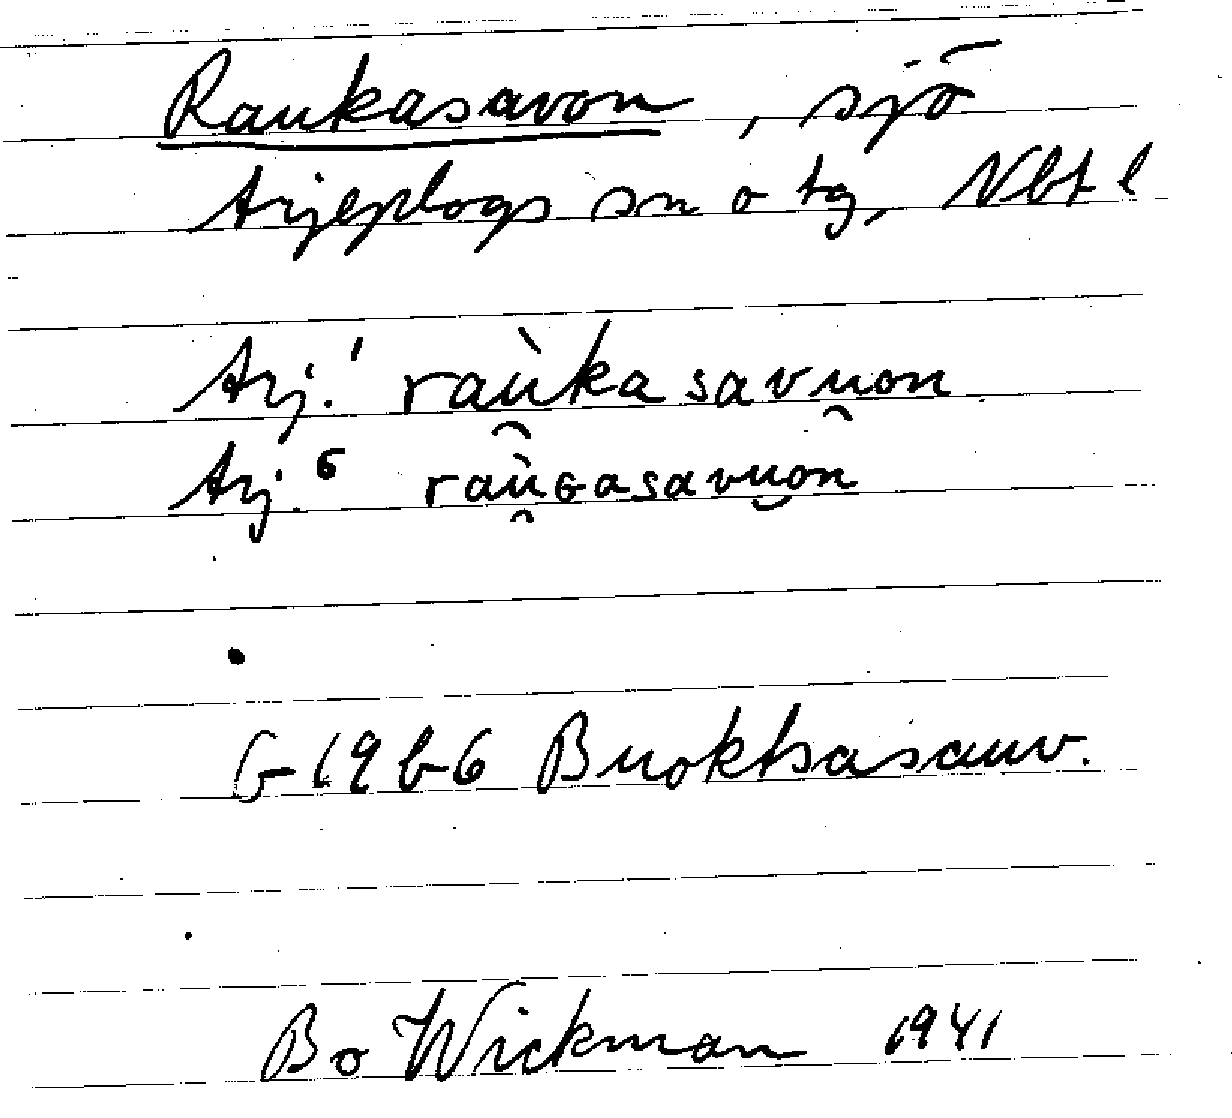 Raukasavon, sjö
Arjeplogs sn o tg, Nbt l
Arj.¹ raù̯ka savu̯on
Arj.⁶ raù̯ɢasavu̯on
G 19 b 6 Buoktsasauv.
Bo Wickman 1941